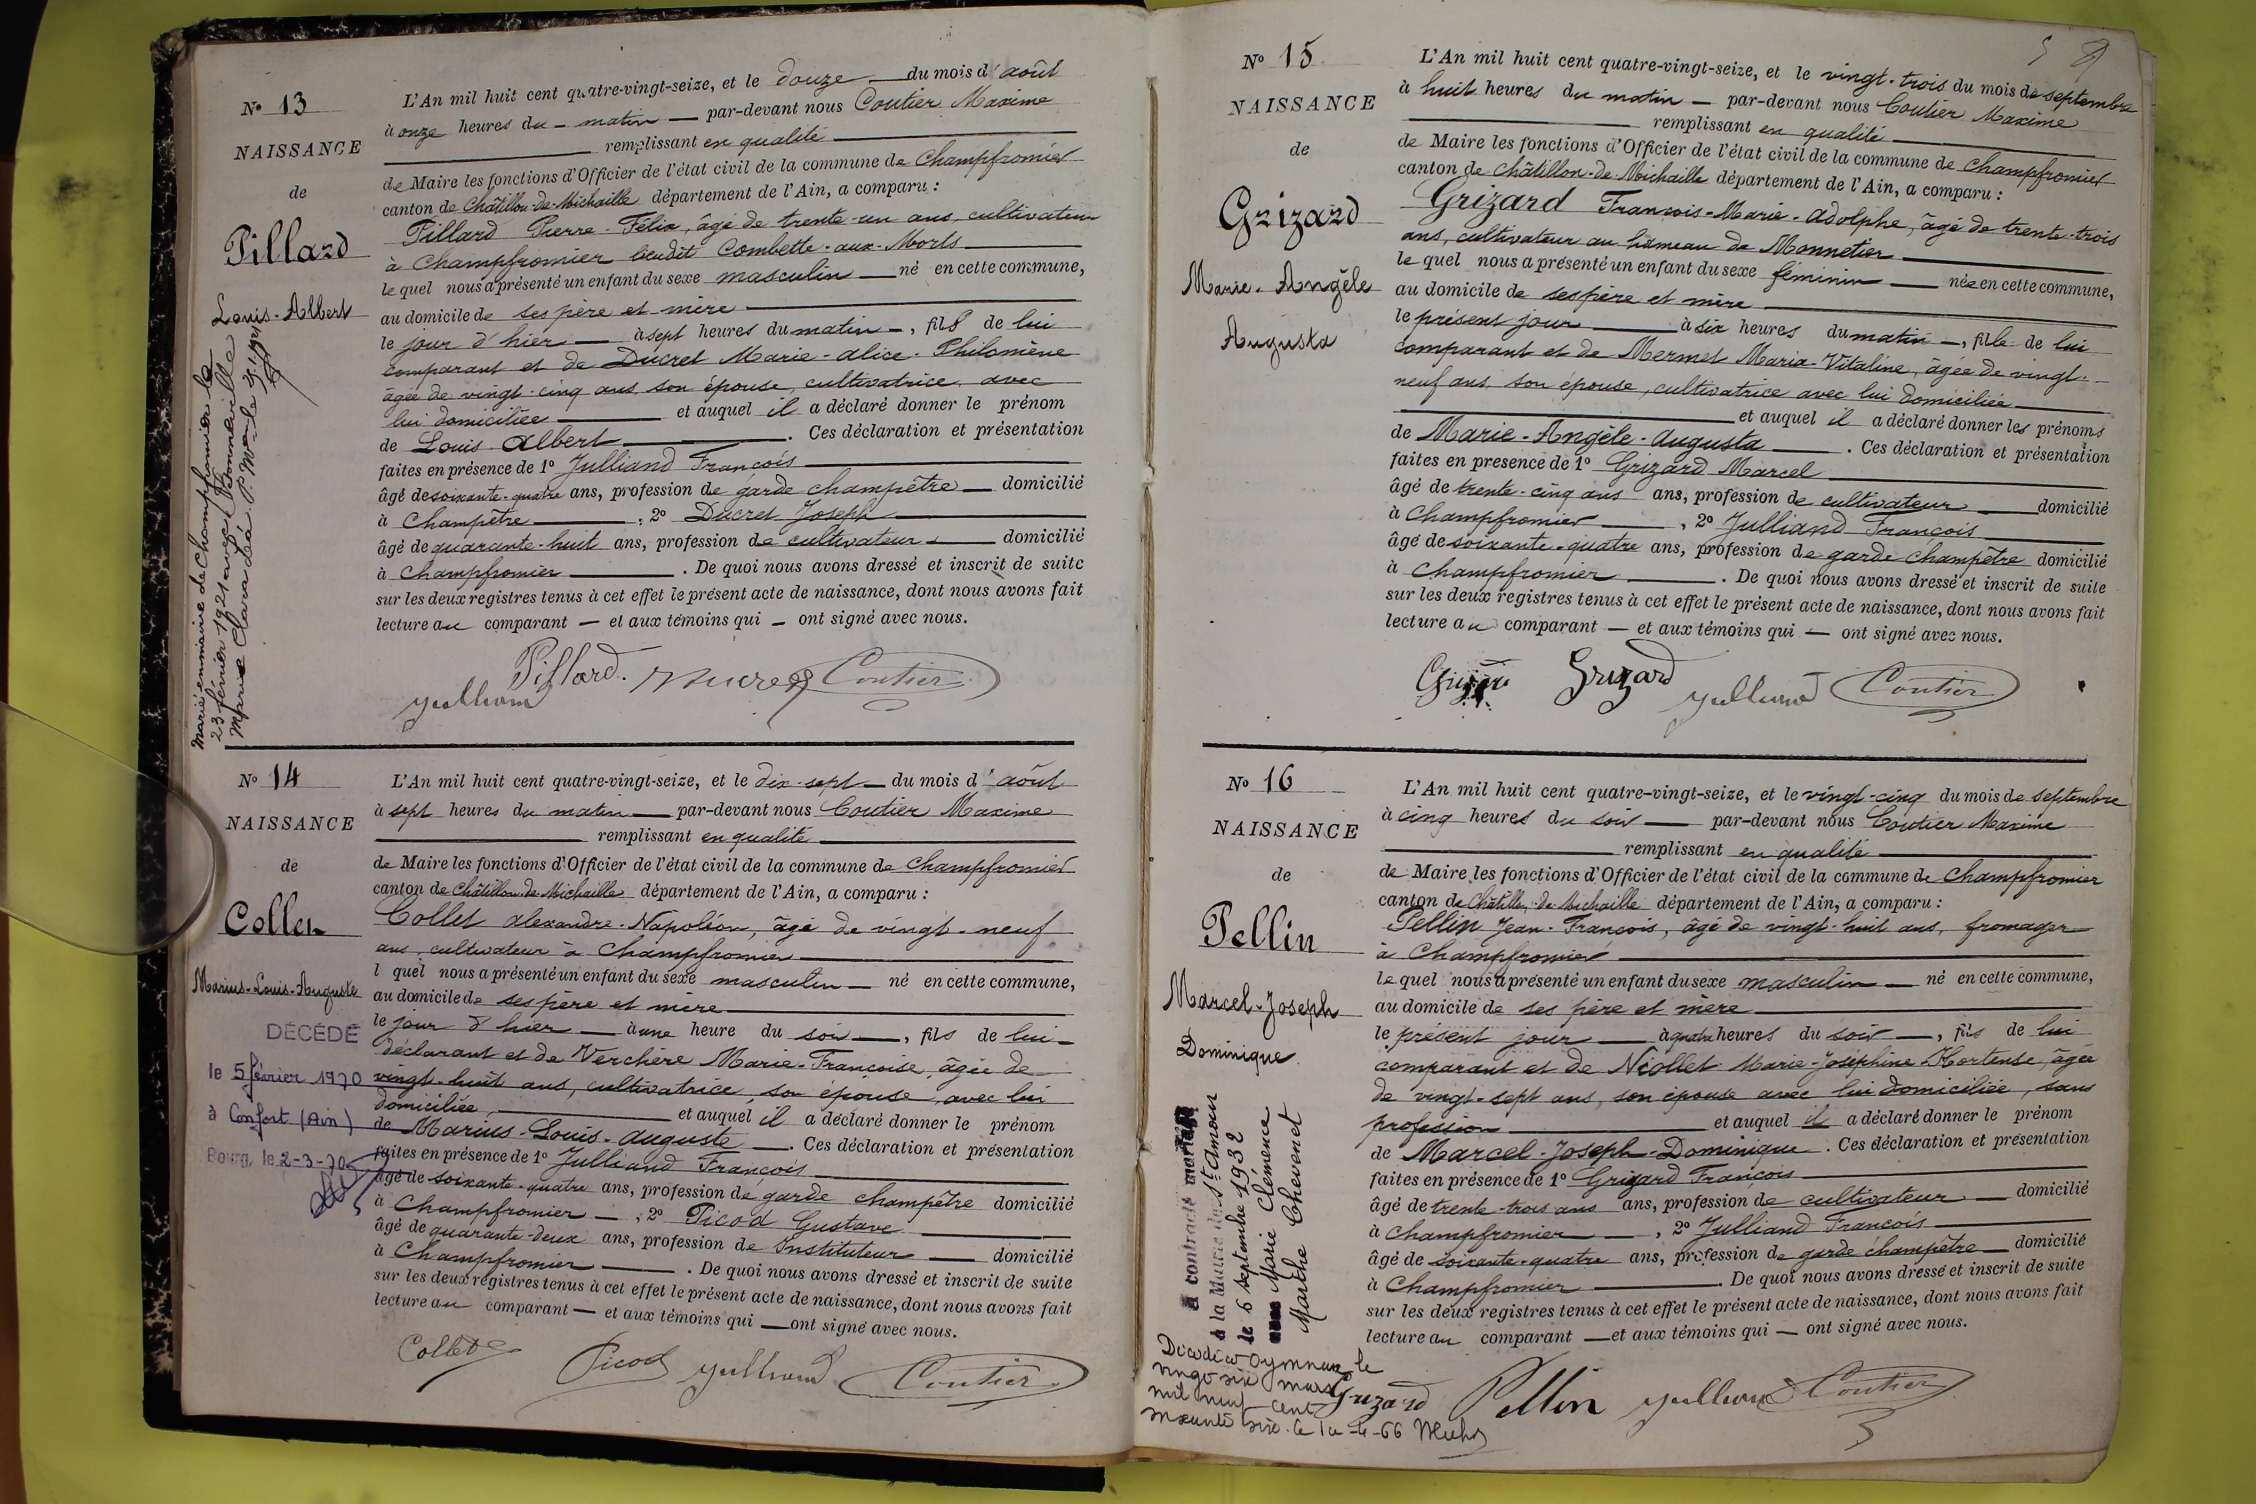 Nº 13
NAISSANCE
de
Pillard
Louis-Albert
Marié en mairie de Champfromier le
23 février 1921 avec Bonneville
Marie Clara
L'An mil huit cent quatre-vingt-seize, et le douze du mois d'août
à onze heures du matin par-devant nous Coutier Maxime
remplissant en qualité
de Maire les fonctions d'Officier de l'état civil de la commune de Champfromier
canton de Châtillon-de-Michaille département de l'Ain, a comparu :
Pillard Pierre-Félix, âgé de trente-un ans, cultivateur
à Champfromier lieudit Combette-aux-Morts
lequel nous a présenté un enfant du sexe masculin né en cette commune,
au domicile de ses père et mère
le jour d'hier à sept heures du matin, fils de lui
comparant et de Ducret Marie-Alice-Philomène
âgée de vingt-cinq ans, son épouse, cultivatrice avec
lui domiciliée et auquel il a déclaré donner le prénom
de Louis-Albert. Ces déclaration et présentation
faites en présence de 1º Julliand François
âgé de soixante-quatre ans, profession de garde champêtre domicilié
à Champêtre, 2º Ducret Joseph
âgé de quarante-huit ans, profession de cultivateur domicilié
à Champfromier. De quoi nous avons dressé et inscrit de suite
sur les deux registres tenus à cet effet le présent acte de naissance, dont nous avons fait
lecture au comparant et aux témoins qui ont signé avec nous.
Pillard. Ducret Coutier
Julliand
Nº 14
NAISSANCE
de
Collet
Marius-Louis-Auguste
DÉCÉDÉ
le 5 février 1970
à Confort (Ain)
Bourg, le 2-3-70
L'An mil huit cent quatre-vingt-seize, et le dix-sept du mois d'août
à sept heures du matin par-devant nous Coutier Maxime
remplissant en qualité
de Maire les fonctions d'Officier de l'état civil de la commune de Champfromier
canton de Châtillon-de-Michaille département de l'Ain, a comparu :
Collet Alexandre-Napoléon, âgé de vingt-neuf
ans, cultivateur à Champfromier
l quel nous a présenté un enfant du sexe masculin né en cette commune,
au domicile de ses père et mère
le jour d'hier à une heure du soir, fils de lui
déclarant et de Verchère Marie-Françoise, âgée de
vingt-huit ans, cultivatrice, son épouse, avec lui
domiciliée, et auquel il a déclaré donner le prénom
de Marius-Louis-Auguste. Ces déclaration et présentation
faites en présence de 1º Julliand François
âgé de soixante-quatre ans, profession de garde champêtre domicilié
à Champfromier, 2º Picod Gustave
âgé de quarante-deux ans, profession de Instituteur domicilié
à Champfromier. De quoi nous avons dressé et inscrit de suite
sur les deux registres tenus à cet effet le présent acte de naissance, dont nous avons fait
lecture au comparant et aux témoins qui ont signé avec nous.
Collet Picod Julliand Coutier
5
Nº 15
NAISSANCE
de
Grizard
Marie-Angèle
Augusta
L'An mil huit cent quatre-vingt-seize, et le vingt-trois du mois de septembre
à huit heures du matin par-devant nous Coutier Maxime
remplissant en qualité
de Maire les fonctions d'Officier de l'état civil de la commune de Champfromier
canton de Châtillon-de-Michaille département de l'Ain, a comparu :
Grizard François-Marie-Adolphe, âgé de trente-trois
ans, cultivateur au hameau de Monnetier
lequel nous a présenté un enfant du sexe féminin née en cette commune,
au domicile de ses père et mère
le présent jour à six heures du matin, fille de lui
comparant et de Mermet Maria-Vitaline, âgée de vingt-
neuf ans, son épouse, cultivatrice avec lui domiciliée
et auquel il a déclaré donner les prénoms
de Marie-Angèle-Augusta. Ces déclaration et présentation
faites en présence de 1º Grizard Marcel
âgé de trente-cinq ans ans, profession de cultivateur domicilié
à Champfromier, 2º Julliand François
âgé de soixante-quatre ans, profession de garde champêtre domicilié
à Champfromier. De quoi nous avons dressé et inscrit de suite
sur les deux registres tenus à cet effet le présent acte de naissance, dont nous avons fait
lecture au comparant et aux témoins qui ont signé avec nous.
Grizard Julliand Coutier
Nº 16
NAISSANCE
de
Pellin
Marcel-Joseph
Dominique
A contracté mariage
à la Mairie de St Amour
le 6 septembre 1932
avec Marie Clémence
Marthe Chevenet
Décédé à Oyonnax le
vingt six mars
mil neuf cent
soixante six. le 1er-4-66
L'An mil huit cent quatre-vingt-seize, et le vingt-cinq du mois de septembre
à cinq heures du soir par-devant nous Coutier Maxime
remplissant en qualité
de Maire les fonctions d'Officier de l'état civil de la commune de Champfromier
canton de Châtillon-de-Michaille département de l'Ain, a comparu :
Pellin Jean-François, âgé de vingt-huit ans, fromager
à Champfromier
lequel nous a présenté un enfant du sexe masculin né en cette commune,
au domicile de ses père et mère
le présent jour à quatre heures du soir, fils de lui
comparant et de Nicollet Marie-Joséphine-Hortense, âgée
de vingt-sept ans, son épouse avec lui domiciliée, sans
profession et auquel il a déclaré donner le prénom
de Marcel-Joseph-Dominique. Ces déclaration et présentation
faites en présence de 1º Grizard François
âgé de trente-trois ans ans, profession de cultivateur domicilié
à Champfromier, 2º Julliand François
âgé de soixante-quatre ans, profession de garde champêtre domicilié
à Champfromier. De quoi nous avons dressé et inscrit de suite
sur les deux registres tenus à cet effet le présent acte de naissance, dont nous avons fait
lecture au comparant et aux témoins qui ont signé avec nous.
Grizard Pellin Julliand Coutier